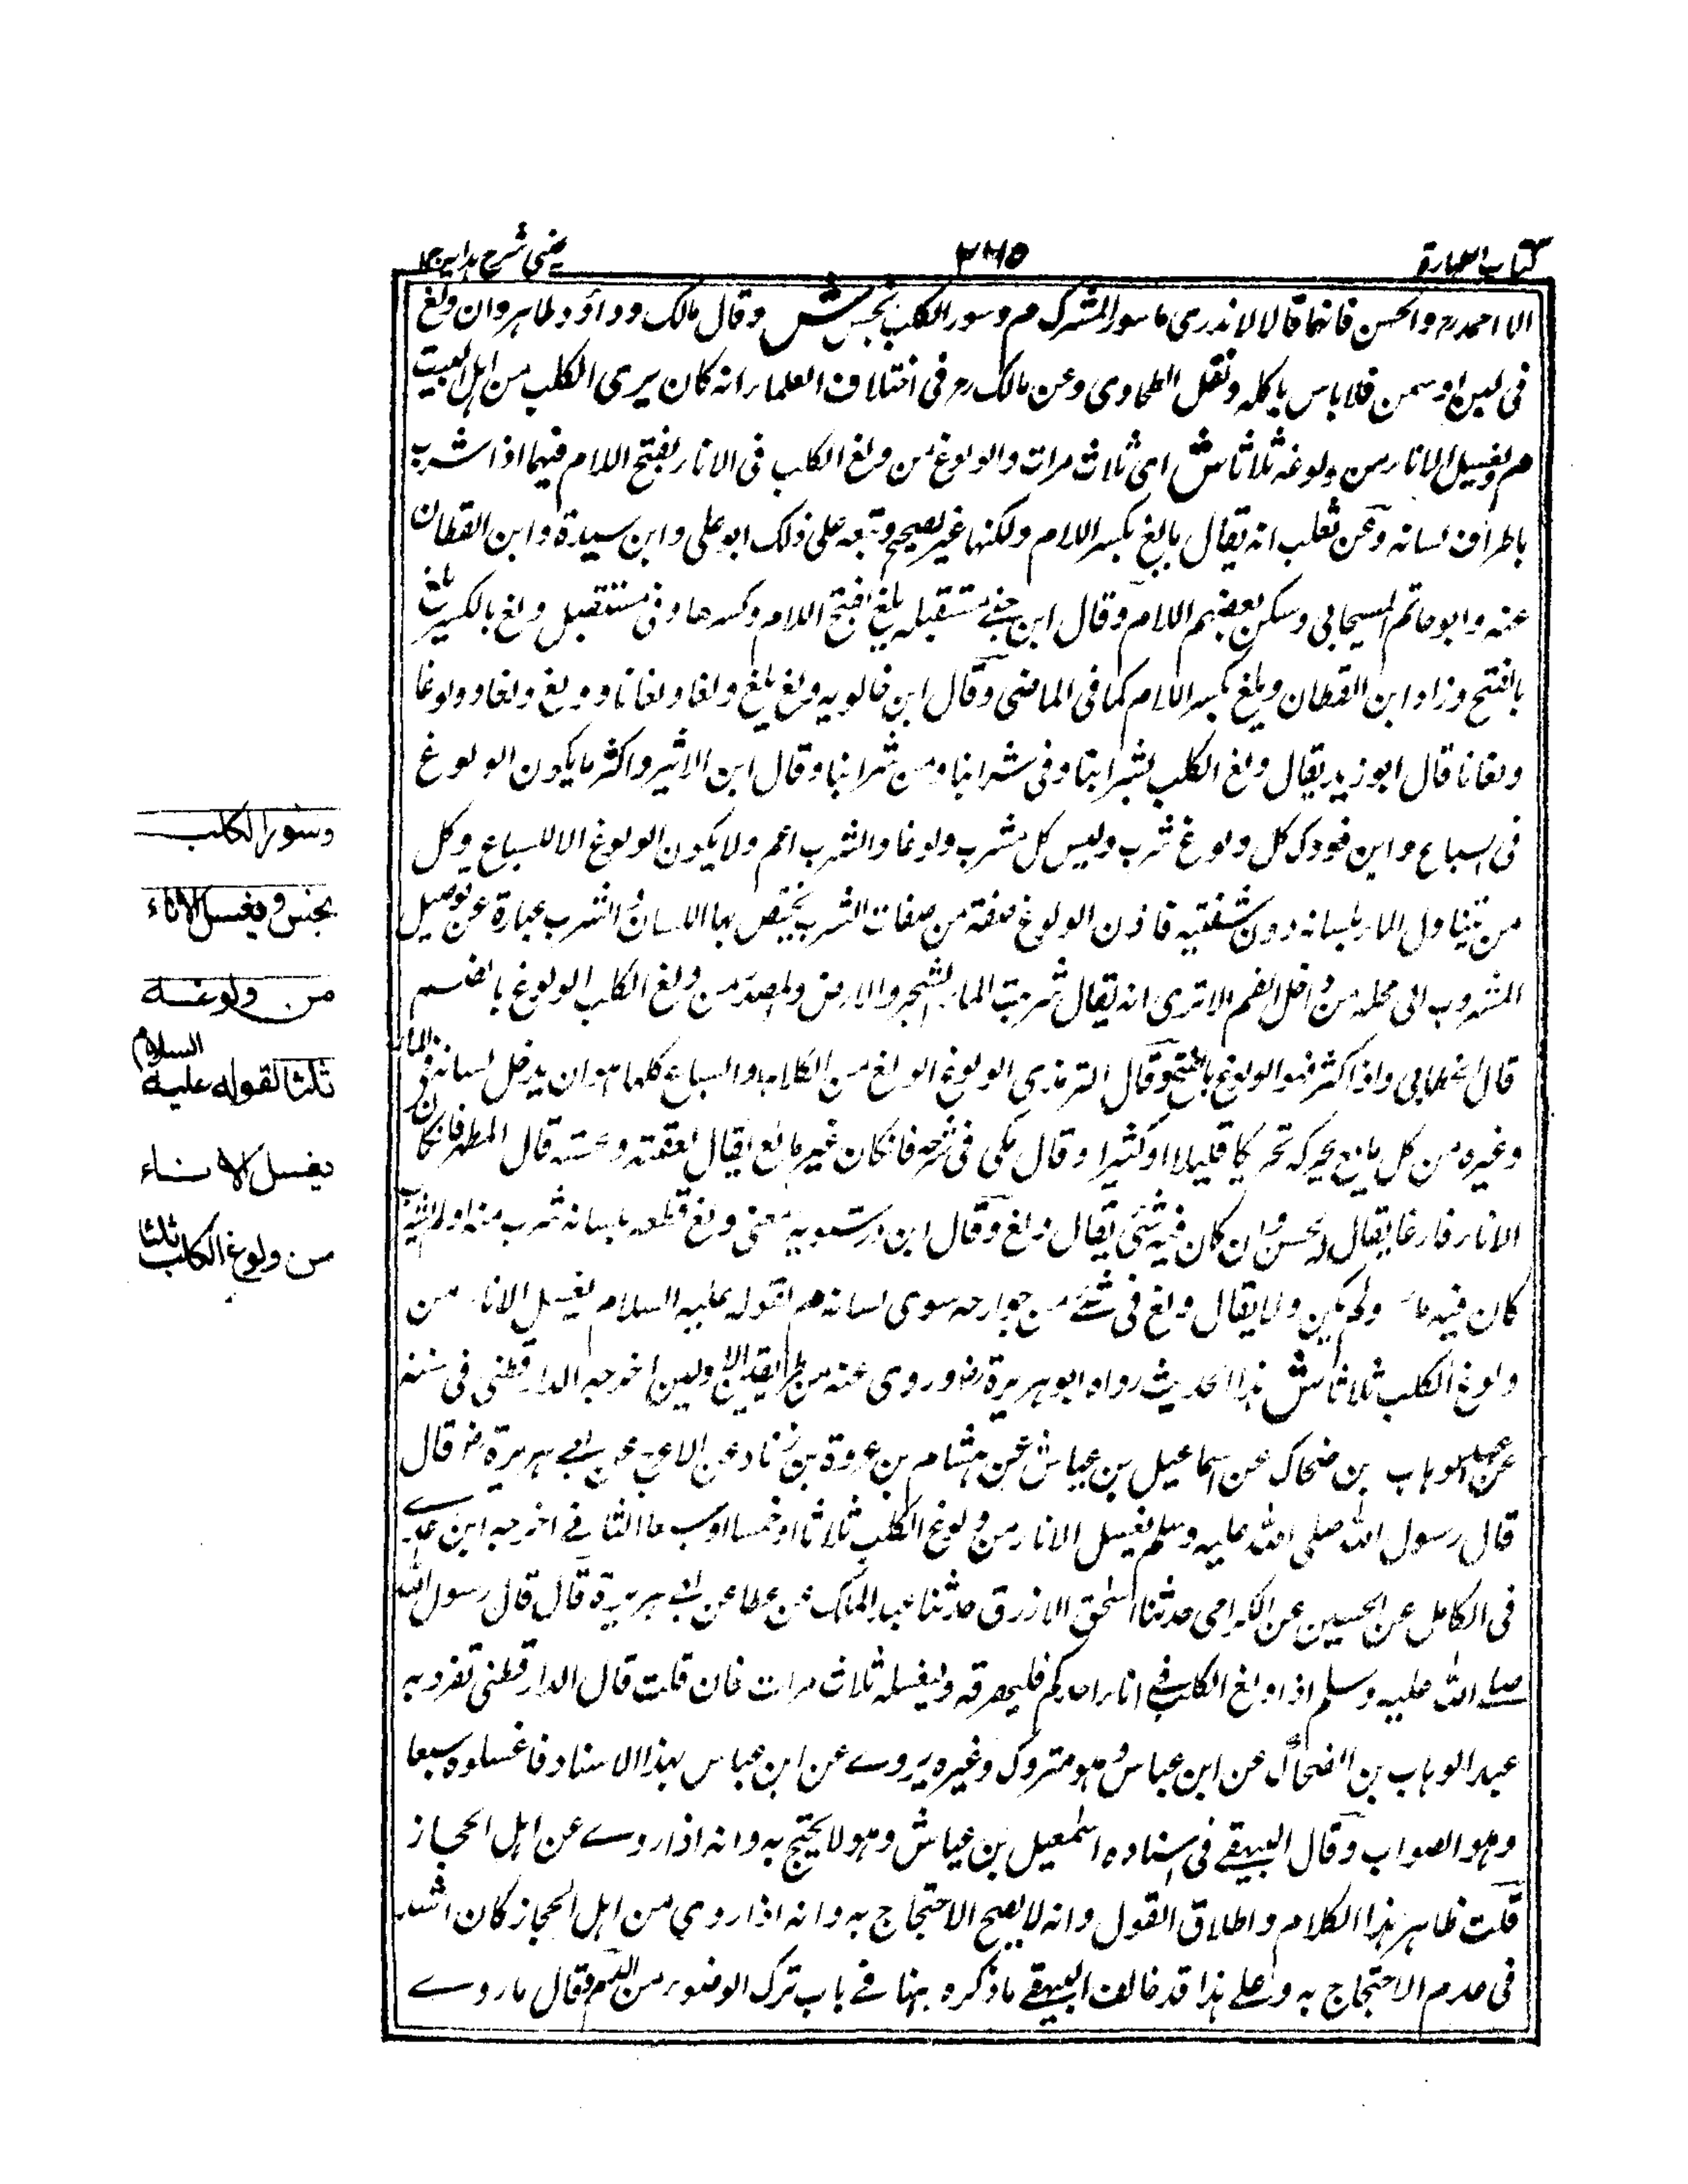 كتاب الطهارة
٢٦٥
عينى شرح هدايه ج١
الا احمد رح والحسن فانهما قالا لا ندرى ما سور المشرك م وسور الكلب نجس ش وقال مالك وداؤد طاهر وان ولغ
فى لبن او سمن فلا باس باكله ونقل الطحاوى وعن مالك رح فى اختلاف العلماء انه كان يرى الكلب من اهل البيت
م ويغسل الاناء من ولوغه ثلاثا ش اى ثلاث مرات والولوغ من ولغ الكلب فى الاناء بفتح اللام فيهما اذا شرب
باطراف لسانه وعن ثعلب انه يقال يالغ بكسر اللام ولكنها غير صحيح وتبعه على ذلك ابو على وابن سيدة وابن القطان
عنه وابو حاتم السيحابى وسكن بعضهم اللام وقال ابن جنى مستقبله يلغ بفتح اللام وكسرها وفى مستقبل ولغ بالكسر يلغ
بالفتح وزاد ابن القطان ويلغ بكسر اللام كما فى الماضى وقال ابن خالويه ولغ يلغ ولغا ولغانا وولغ ولغا وولوغا
ولغانا قال ابو زيد يقال ولغ الكلب بشرابنا وفى شرابنا ومن شرابنا وقال ابن الاثير واكثر ما يكون الولوغ
فى السباع وابن فودك كل ولوغ شرب وليس كل شرب ولوغا والشرب اعم ولا يكون الولوغ الا للسباع وكل
من يتناول الماء بلسانه دون شفتيه فاذن الولوغ صفة من صفات الشرب يختص بها اللسان والشرب عبارة عن توصيل
المشروب الى محله من داخل الفم الا ترى انه يقال شربت الماء الشجر والارض والمصدر من ولغ الكلب الولوغ بالضم
قال الخطابى واذا كثر فهو الولوغ بالفتح وقال الترمذى الولوغ الولغ من الكلاب والسباع كلها هو ان يدخل لسانه فى الماء
وغيره من كل مايع يحركه تحريكا قليلا او كثيرا وقال مكى فى شرحه فان كان غير مايع يقال لعقته ولحسته قال المطرز فان كان
الاناء فارغا يقال لحس وان كان فيه شئ يقال ولغ وقال ابن درستويه معنى ولغ قطعه بلسانه شرب منه او لم يشرب
كان فيه ماء او لم يكن ولا يقال ولغ فى شئ من جوارحه سوى لسانه م لقوله عليه السلام يغسل الاناء من
ولوغ الكلب ثلاثا ش هذا الحديث رواه ابو هريرة رض وروى عنه من طريقين الاولين اخرجه الدارقطنى فى سننه
عن عبد الوهاب بن ضحاك عن اسماعيل بن عياش عن هشام بن عروة بن زناد عن الاعرج عن ابى هريرة رض قال
قال رسول الله صلى الله عليه وسلم يغسل الاناء من ولوغ الكلب ثلاثا او خمسا او سبعا الثانى اخرجه ابن عدى
فى الكامل عن الحسين عن الكرابى حدثنا اسحق الازرق حدثنا عبد الملك عن عطا عن ابى هريرة قال قال رسول الله
صلى الله عليه وسلم اذا ولغ الكلب فى اناء احدكم فليهرقه وليغسله ثلاث مرات فان قلت قال الدارقطنى تفرد به
عبد الوهاب بن الضحاك عن ابن عباس وهو متروك وغيره يروى عن ابن عباس بهذا الاسناد فاغسلوه سبعا
وهو الصواب وقال البيهقى فى اسناده اسمعيل بن عياش وهو لا يحتج به وانه اذا روى عن اهل الحجاز
قلت ظاهر هذا الكلام واطلاق القول وانه لا يصح الاحتجاج به وانه اذا روى من اهل الحجاز كان اشد
فى عدم الاحتجاج به وعلى هذا قد خالف البيهقى ما ذكره هنا فى باب ترك الوضوء من الدم فقال ما روى
وسور الكلب
نجس ويغسل الاناء
من ولوغه
ثلثا لقوله عليه السلام
يغسل الاناء
من ولوغ الكلب ثلثا